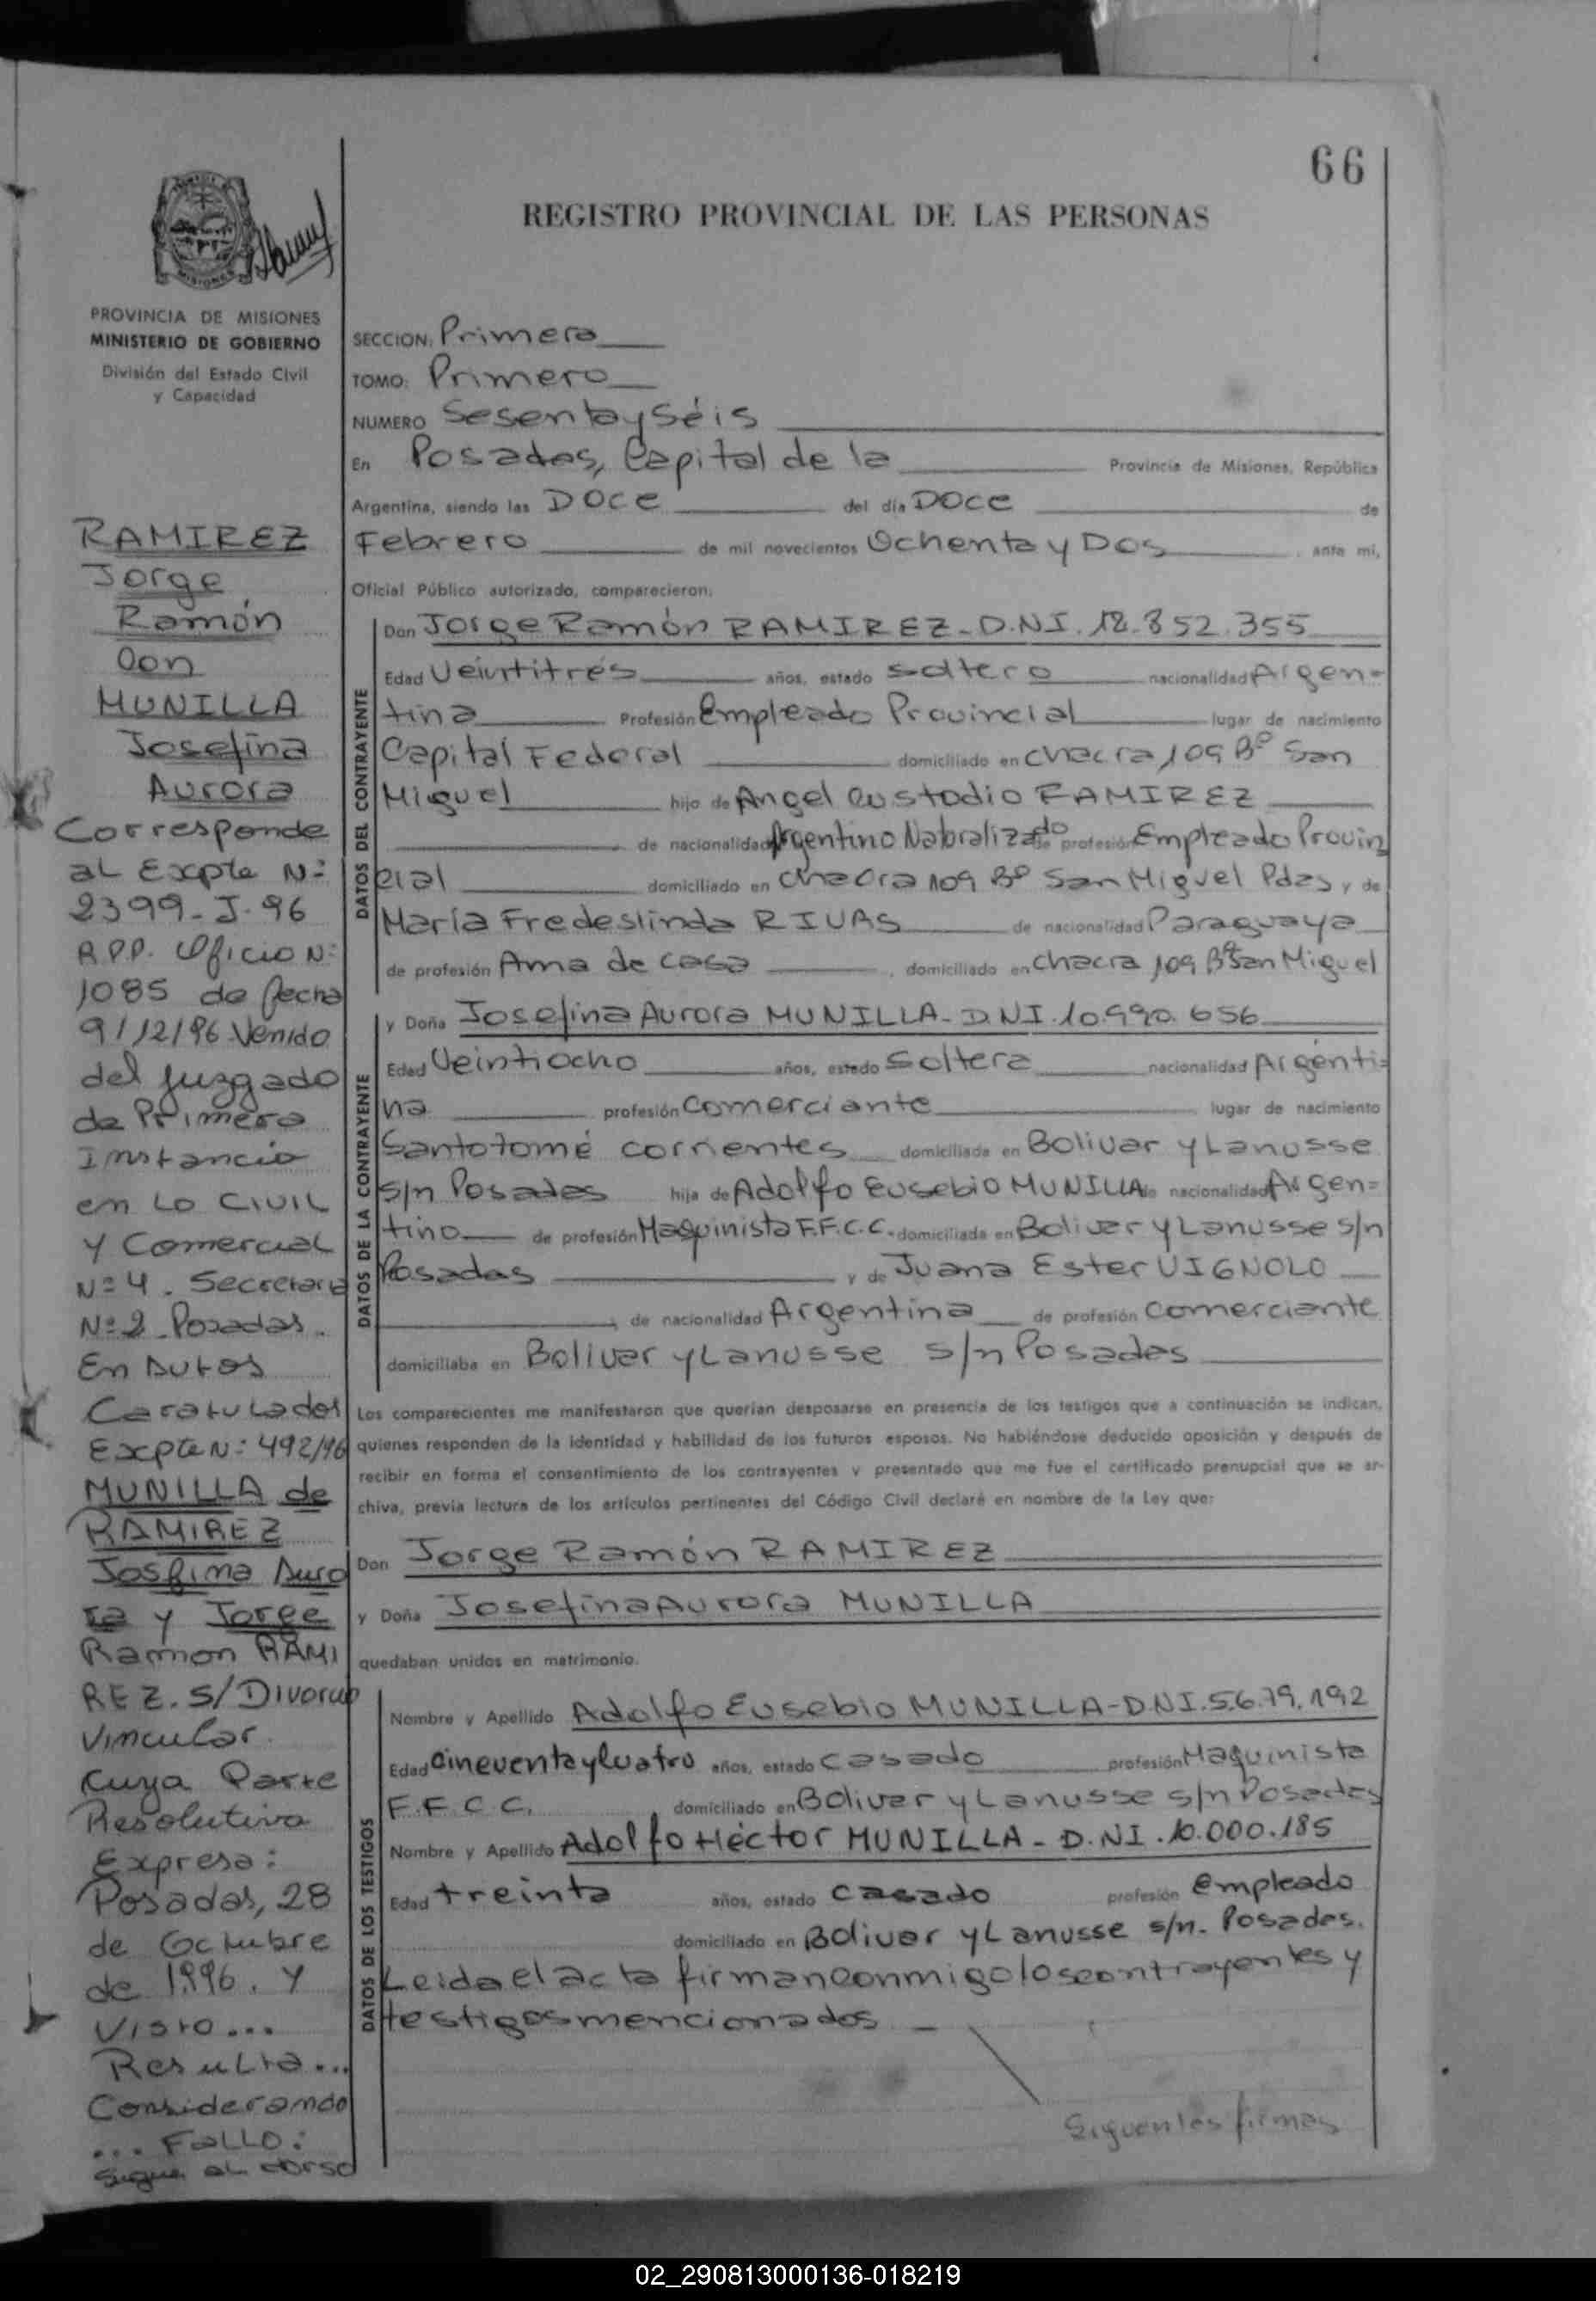 66
REGISTRO PROVINCIAL DE LAS PERSONAS
PROVINCIA DE MISIONES
MINISTERIO DE GOBIERNO
División del Estado Civil
y Capacidad
RAMIREZ
Jorge
Ramón
Con
MUNILLA
Josefina
Aurora
Corresponde
al Expte Nº
2399-J-96
R.P.P. Oficio Nº
1085 de fecha
9/12/96 Venido
del Juzgado
de Primera
Instancia
en Lo Civil
y Comercial
Nº 4. Secretaria
Nº 2 Posadas.
En Autos
Caratulados
Expte Nº 492/96
MUNILLA de
RAMIREZ
Josfina Auro
ra y Jorge
Ramon RAMI
REZ. S/ Divorcio
Vincular
Cuya Parte
Resolutiva
Expresa:
Posadas, 28
de Octubre
de 1996. Y
Visto...
Resulta...
Considerando
... Fallo:
Sigue al dorso
SECCION: Primera
TOMO: Primero
NUMERO Sesenta y Séis
En Posadas, Capital de la Provincia de Misiones, República
Argentina, siendo las Doce del día Doce de
Febrero de mil novecientos Ochenta y Dos, ante mí,
Oficial Público autorizado, comparecieron:
DATOS DEL CONTRAYENTE
Don Jorge Ramón RAMIREZ - D.N.I. 12.852.355
Edad Veintitrés años, estado soltero nacionalidad Argen=
tina Profesión Empleado Provincial lugar de nacimiento
Capital Federal domiciliado en chacra 109 Bº San
Miguel hijo de Angel Custodio RAMIREZ
de nacionalidad Argentino Nabralizado de profesión Empleado Provin
cial domiciliado en chacra 109 Bº San Miguel Pdas y de
María Fredeslinda RIVAS de nacionalidad Paraguaya
de profesión Ama de casa, domiciliado en chacra 109 Bº San Miguel
DATOS DE LA CONTRAYENTE
y Doña Josefina Aurora MUNILLA - D.N.I. 10.990.656
Edad Veintiocho años, estado soltera nacionalidad Argenti=
na profesión comerciante lugar de nacimiento
Santotomé corrientes domiciliada en Bolivar y Lanusse
s/n Posadas hija de Adolfo Eusebio MUNILLA de nacionalidad Argen=
tino de profesión Maquinista F.F.C.C. domiciliada en Bolivar y Lanusse s/n
Posadas y de Juana Ester VIGNOLO
, de nacionalidad Argentina de profesión comerciante
domiciliaba en Bolivar y Lanusse s/n Posadas
Los comparecientes me manifestaron que querían desposarse en presencia de los testigos que a continuación se indican,
quienes responden de la identidad y habilidad de los futuros esposos. No habiéndose deducido oposición y después de
recibir en forma el consentimiento de los contrayentes y presentado que me fue el certificado prenupcial que se ar-
chiva, previa lectura de los artículos pertinentes del Código Civil declaré en nombre de la Ley que:
Don Jorge Ramón RAMIREZ
y Doña Josefina Aurora MUNILLA
quedaban unidos en matrimonio.
DATOS DE LOS TESTIGOS
Nombre y Apellido Adolfo Eusebio MUNILLA - D.N.I. 5.679.192
Edad Cincuenta y Cuatro años, estado casado profesión Maquinista
F.F.C.C. domiciliado en Bolivar y Lanusse s/n Posadas
Nombre y Apellido Adolfo Héctor MUNILLA - D.N.I. 10.000.185
Edad treinta años, estado casado profesión empleado
domiciliado en Bolivar y Lanusse s/n. Posadas.
Leida el acta firman conmigo los contrayentes y
testigos mencionados
Siguen las firmas
02_290813000136-018219